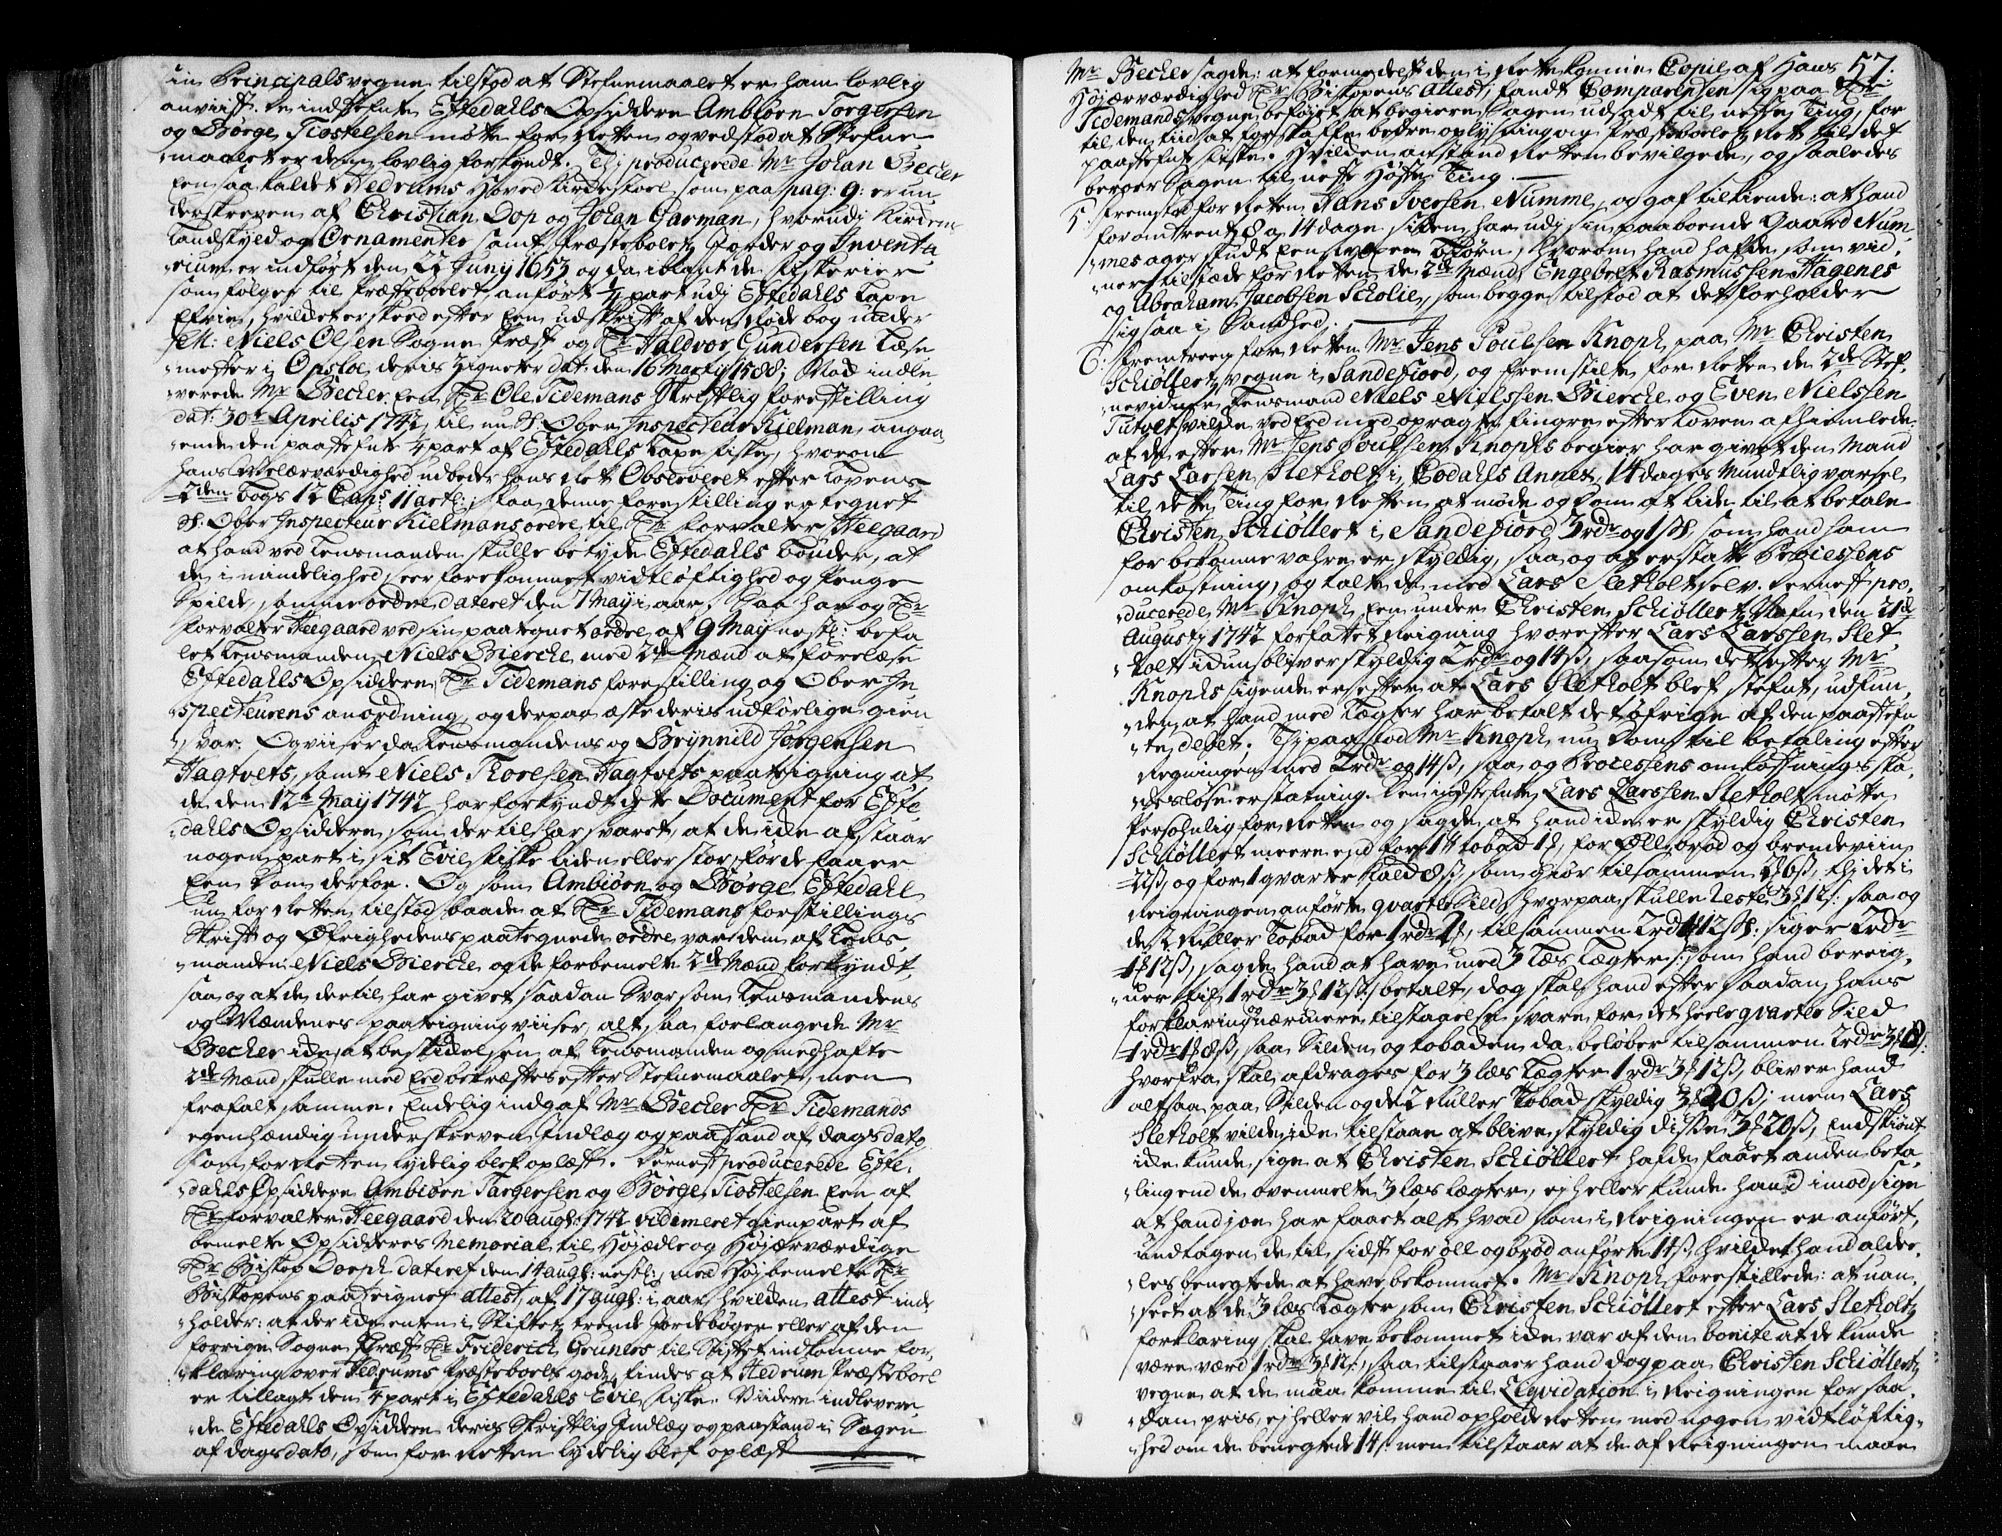 sin Principals vegne tilstod at Stefnemaalet er ham lovlig
anviist. De indstefnte Eftedahls Opsiddere Ambiørn Torgersen
og Børge Tiostelsen møtte for Retten og vedstod at Stefne
maalet er dem lovlig forkyndt. Thj producerede Mr Johan Becher
een saa kaldet Hedrums Hoved Kirdestoel, som paa pag: 9: er un,
derskreven af Christian Dop og Johan Garman, hvorudj Kirdens
Landskyld og Ornamenter samt Præstebolets Jorder og Inventa
rium er indført den 22 Juny 1653 og da iblant de Fiskerier
som følger til Præstebolet, anført ¼ part udj Eftedahls Laxe
Efvie, hvilket er skeed efter een udskrift af den Røde bog under
Hr: Niels Olsen Sogne Præst og Hr Haldvor Gundersen Læse
mester i Opsloe deris Zigneter dat: den 16 Marty 1588; Mod indle,
verede Mr Becher een Hr Ole Tidemans Skriftlig forestilling
dat: 30te Aprilis 1742, til nu H: Ober Inspecteur Kielman angaa
ende den paastefnte ¼ part af Eftedahls Laxe fiske, hvorom
hans Velærværdighed udbeder hans Ret Observeret efter Lovens
2den bogs 12 Cap: 11 art:; Paa denne forestilling er tegnet
H: Ober Inspecteur Kielmans ordre til Hr forvalter Heegaard
at hand ved Lensmanden skulle betyde Eftedahls Bønder, at
de i mindelighed seer forekommet vidtløftighed og Penge
Spilde, samme ordre dateret den 7 May i aar. Saa har og Hr
forvalter Heegaard ved sin paategnet ordre af 9 May nestl: befa
let Lensmanden Niels Bierche med 2de Mænd at forelæse
Eftedahls Opsiddere Hr Tidemans forestilling og Ober In
specteurens anordning, og derpaa æste deris udførlige gien
svar. Og viiser da Lensmandens og Brynnild Jørgensen
Hagtvets, samt Niels Thoresen Hagtvets paateigning at
de den 12te May 1742 har forkyndt dette Document for Efte
dahls Opsiddere, som der til har svaret, at de ide afstaar
nogen part i sit Evil fiske liden eller stor, førde faaer
Een Dom derfor. Og som Ambiørn og Børge Eftedahl
nu for Retten tilstod baade at Hr Tidemans forstillings
Skrift og Øfrighedens paategnede ordre var dem af Lens
manden Niels Bierche og de forbemelte 2de Mænd forkyndt
saa og at de dertil har givet saadan Svar som Lensmandens
og Mændenes paateigning viiser, alt saa forlangede Mr
Becher ide at beskidelsen af Lensmanden og medhafte
2de Mænd skulle med Eed bekræftes efter Stefnemaalet, men
frafalt samme. Endelig indgaf Mr Becher Hr Tidemands
egenhændig underskreven Indlæg og paastand af dags dato
som for Retten lydelig blef oplæst. Dernest producerede Efte,
dahls Opsiddere Ambiørn Targersen og Børge Tiostelsen Een af
Hr forvalter Heegaard den 20 augt: 1742 vidimeret gienpart af
bemelte Opsidderes Memorial til Højædle og Højærværdige
Hr Biskop Dorph dateret den 14 augt: nestl:, med Højbemelte Hr
Biskopens paateignet attest, af 17 augt: i aar, hvilken attest inde
holder: at der ide enten i Stiftets trende Jordebøger eller af den
forrige Sogne Præst Hr Friderich Gruners til Stiftet indkomne for,
klaring over Hedrums Præsteboels gods, findes at Hedrum Præsteboel
er tillagt den ¼ part i Eftedahls Evil fiske. Viidere indlevere,
de Eftedahls Opsiddere deris Skriftlig Indlæg og paastand i Sagen
af dags dato, som for Retten lydelig blef oplæst
57.
Mr Becher sagde: at formedelst den i Rette komne Copie af Hans
Højærværdighed Hr Biskopens Attest; fandt Comparensen sig paa Hr
Tidemands vegne beføiet at begiere Sagen udsadt til neste Ting, for
til den tiid at forskaffe bedre oplysning om Præstebolets Ret til det
paastefnt fiske. Hvilden anstand Retten bevilgede, og saaledes
beroer Sagen til neste Høste Ting.
5. Fremstod for Retten Hans Iversen Numme, og gaf tilkiende: at hand
for omtrent 8 a 14 dage siden har udj sin paaboende Gaard Num,
mes ager skudt Een Biørn, hvorom hand hafde som vid,
ner tilstæde for Retten de 2de Mænd Engebret Rasmussen Hagenes
og Abraham Jacobsen Scholie, som begge tilstod at det forholder
sig saa i Sandhed.
6: Fremtreen for Retten Mr Jens Poulsen Knoph paa Mr Christen
Schiøllerts vegne i Sandefiord, og fremstilte for Retten de 2de Stef,
nevidner Lensmand Niels Nielssen Bierche og Even Nielssen
Tutolf, vilde ved Eed med opragte fingre efter Loven afhiemlede
at de efter Mr Jens Poulsen Knophs begier har givet den Mand
Lars Larsen Sletholt i Bodahls Annex, 14 dages Mundtlig varsel
til dette Ting for Retten at møde og dom at lide til at betale
Christen Schiøllert i Sandefiord 3 rdr og 1 ß, som hand ham
for bekomne vahre er skyldig, saa og at erstatte Processens
omkostning, og talte de med Lars Sletholt selv. Dernest pro,
ducerede Mr Knoph Een under Christen Schiøllerts Nafn den 21de
Augusty 1742 forfattet Reigning hvorefter Lars Larssen Slet
holt idun bliver skyldig 2 rdr og 14 ß, saasom det efter Mr
Knophs sigende er efter at Lars Sletholt blef stefnt, udfun,
den at hand med Lægter har betalt det øfrige af den paastefn
te debet. Thj paastod Mr Knoph nu Dom til betaling efter
Regningen med 2 rdr og 14 ß, saa og Processens omkostnings ska,
desløse erstatning. Den indstefnte Lars Larssen Sletholt møtte
Persohnlig for Retten og sagde at hand ide er skyldig Christen
Schiøllert meere end for 1 tobad 1 ß, for Øll brød og brendeviin
22 ß, og for 1 qvarter Kald 8 ß, som giør tilsammen 6 ß, thj det i
Reigningen anførte qvarter Sild, hvorpaa skulle reste 3 12: saa og
de 2 Ruller tobad for 1 rdr 2, tilsammen 2 rd 12 ß: siger 2 rdr
1 12 ß, sagde hand at have med 3 Læs Lægter /: som hand bereig,
ner til 1 rdr 3 12 ß :/ betalt, dog skal hand efter saadan hans
forklaring og nærmere tilstagelse svare for det heele qvarter Sild
1 rdr 1 8 ß, saa Silden og tobaden da beløber tilsammen 2 rdr 3 8:
hvorfra skal afdrages for 3 læs Lægter 1 rdr 3 12 ß, bliver hand
altsaa paa Silden og de 2 Ruller tobad skyldig 3 20 ß; men Lars
Sletholt vilde ide tilstaae at blive skyldig disse 3 20 ß, endskiønt
ide kunde sige at Christen Schiøllert hafde faaet anden beta,
ling end de ovenmelte 3 læs lægter, ej heller kunde hand imodsige
at hand joe har faaet alt hvad som i Reigningen er anført,
undtagen de til sidst for øll og brød anførte 14 ß, hvilket hand alde,
les benegtede at have bekommet. Mr Knoph forestillede: at uan,
seet at de 3 læs Lægter som Christen Schiøllert efter Lars Sletholts
forklaring skal have bekommet ide var af den bonite at de kunde
være værd 1 rdr 3 12:, saa tilstaaer hand dog paa Christen Schiøllerts
vegne at de maa komme til Liqvidation i Reigningen for saa,
dan pris, ej heller vil hand opholde Retten med nogen vidtløftig,
hed om de benegtede 14 ß men tilstaar at de af Reigningen maae